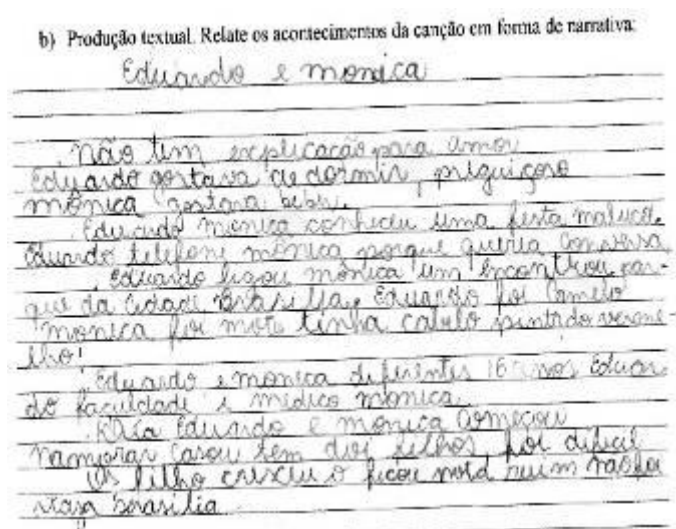 b) Produção textual. Relate os acontecimentos da canção em forma de narrativa:
Eduardo e monica
não tem explicacão para amor
Eduardo gostava de dormir, priguiçoso
mônica gostava beber.
Eduardo monica conheceu uma festa maluca.
Eduardo telefone mônica porque queria conversa
Eduardo ligou mônica um encontrou par-
que da cidade Brasília, Eduardo foi camelo
monica foi moto tinha cabelo pintado verme-
lho!
Eduardo e monica diferentes 16 anos Eduar-
do faculdade e médico monica.
Eduardo e monica começou
namorar casou tem dois filhos foi dificil
Os filho cresceu o ficou ruim não foi
brasilia